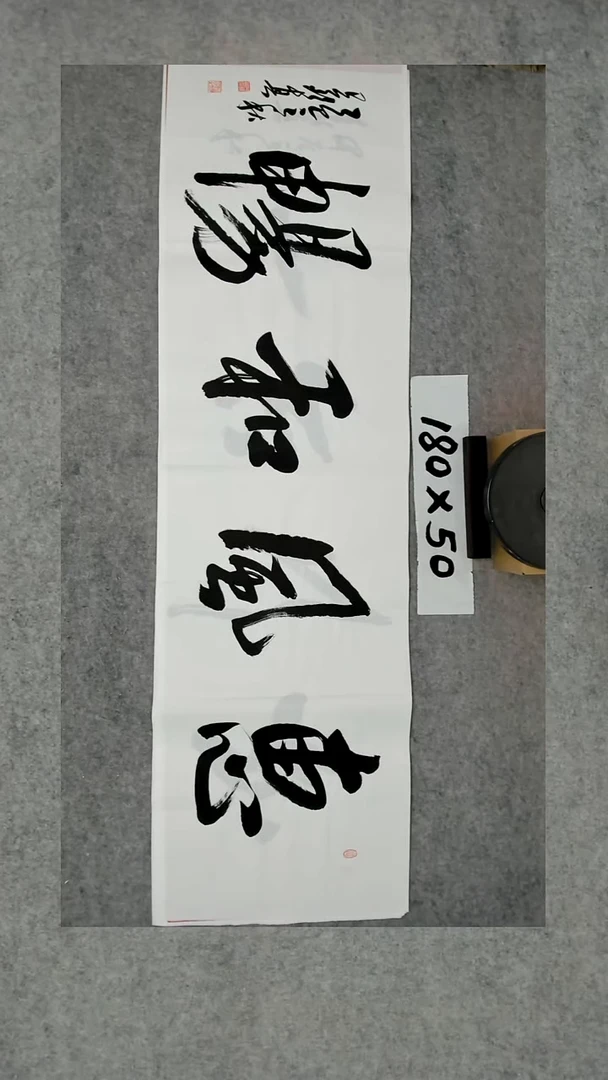 惠風和暢
180×50